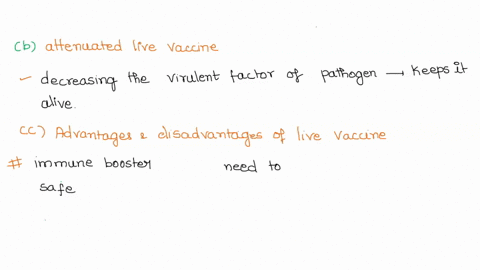 (b) attenuated live vaccine
– decreasing the virulent factor of pathogen → keeps it
alive.
(c) Advantages & disadvantages of live vaccine
# immune booster need to
safe